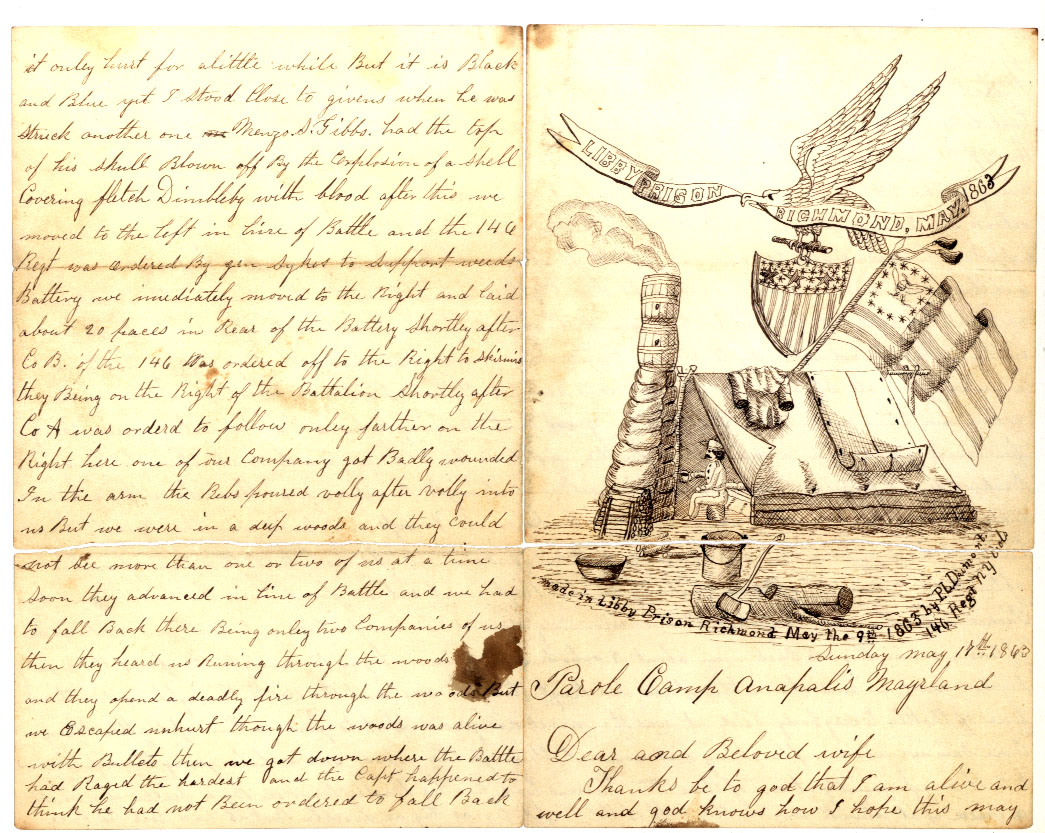 it onley hurt for alittle while But it is Black
and Blue yet I stood Close to givens when he was
struck another one Menzo. S. Gibbs. had the top
of his skull Blown off By the Explosion of a shell
Covering flitch Dimbleby with blood after this we
moved to the left in line of Battle and the 146
Regt was ordered By gen Sykes to support weeds
Battery we imediately moved to the Right and laid
about 20 paces in Rear of the Battery Shortley after
Co B. of the 146 Was ordered off to the Right to skirmis
they Being on the Right of the Battalion Shortley after
Co A was orderd to follow onley farther on the
Right here one of our Company got Badly wounded
In the arm the Rebs poured volly after volly into
us But we were in a deep woods and they could
not See more than one or two of us at a time
Soon they advanced in line of Battle and we had
to fall Back there Being onley two Companies of us
then they heard us Runing through the woods
and they opend a deadly fire through the woods But
we Escaped unhurt though the woods was alive
with Bullets then we got down where the Battle
had Raged the hardest and the Capt happened to
think he had not Been ordered to fall Back
LIBBY PRISON RICHMOND, MAY. 1863
made in Libby Prison Richmond May the 9th 1863 by Ph Dumont
146 Regt N.Y.
Sunday may 17th 1863
Parole Camp Anapalis Mayrland
Dear and Beloved wife
Thanks be to god that I am alive and
well and god knows how I hope this may